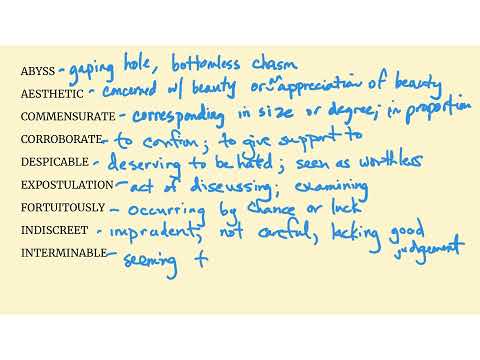 ABYSS - gaping hole, bottomless chasm
AESTHETIC - concerned w/ beauty or an appreciation of beauty
COMMENSURATE - corresponding in size or degree; in proportion
CORROBORATE - to confirm; to give support to
DESPICABLE - deserving to be hated; seen as worthless
EXPOSTULATION - act of discussing; examining
FORTUITOUSLY - occurring by chance or luck
INDISCREET - imprudent; not careful, lacking good judgement
INTERMINABLE - seeming t